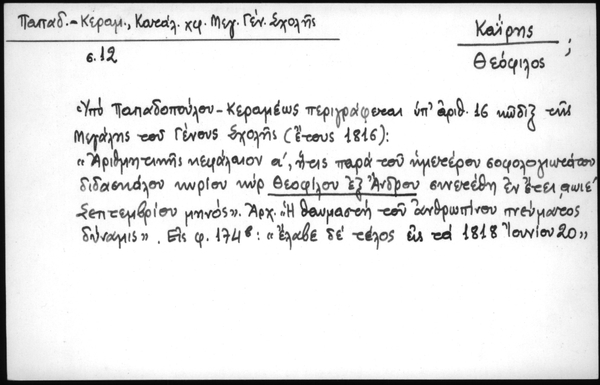 Παπαδ.-Κεραμ., Κατάλ. χφ. Μεγ. Γέν. Σχολῆς
σ. 12
Καΐρης
Θεόφιλος ;
«Ὑπό Παπαδοπούλου-Κεραμέως περιγράφεται ὑπ' ἀριθ. 16 κῶδιξ τῆς
Μεγάλης τοῦ Γένους Σχολῆς (ἔτους 1816):
«Ἀριθμητικῆς κεφάλαιον α', ἥτις παρά τοῦ ἡμετέρου σοφολογιωτάτου
διδασκάλου κυρίου κύρ Θεοφίλου ἐξ Ἄνδρου συνετέθη ἐν ἔτει ͵αωιϛ'
Σεπτεμβρίου μηνός». Ἀρχ. «Ἡ θαυμαστή τοῦ ἀνθρωπίνου πνεύματος
δύναμις». Εἰς φ. 174β: «ἔλαβε δέ τέλος εἰς τά 1818 Ἰουνίου 20»